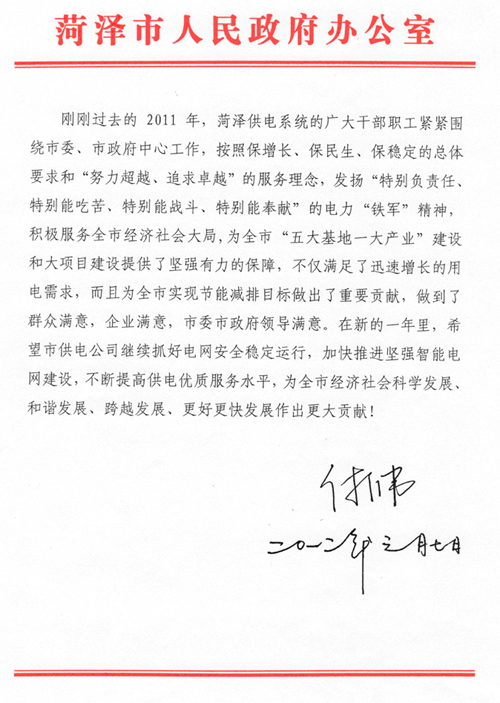 菏泽市人民政府办公室
刚刚过去的 2011 年，菏泽供电系统的广大干部职工紧紧围
绕市委、市政府中心工作，按照保增长、保民生、保稳定的总体
要求和“努力超越、追求卓越”的服务理念，发扬“特别负责任、
特别能吃苦、特别能战斗、特别能奉献”的电力“铁军”精神，
积极服务全市经济社会大局，为全市“五大基地一大产业”建设
和大项目建设提供了坚强有力的保障，不仅满足了迅速增长的用
电需求，而且为全市实现节能减排目标做出了重要贡献，做到了
群众满意，企业满意，市委市政府领导满意。在新的一年里，希
望市供电公司继续抓好电网安全稳定运行，加快推进坚强智能电
网建设，不断提高供电优质服务水平，为全市经济社会科学发展、
和谐发展、跨越发展、更好更快发展作出更大贡献！
二〇一二年三月七日